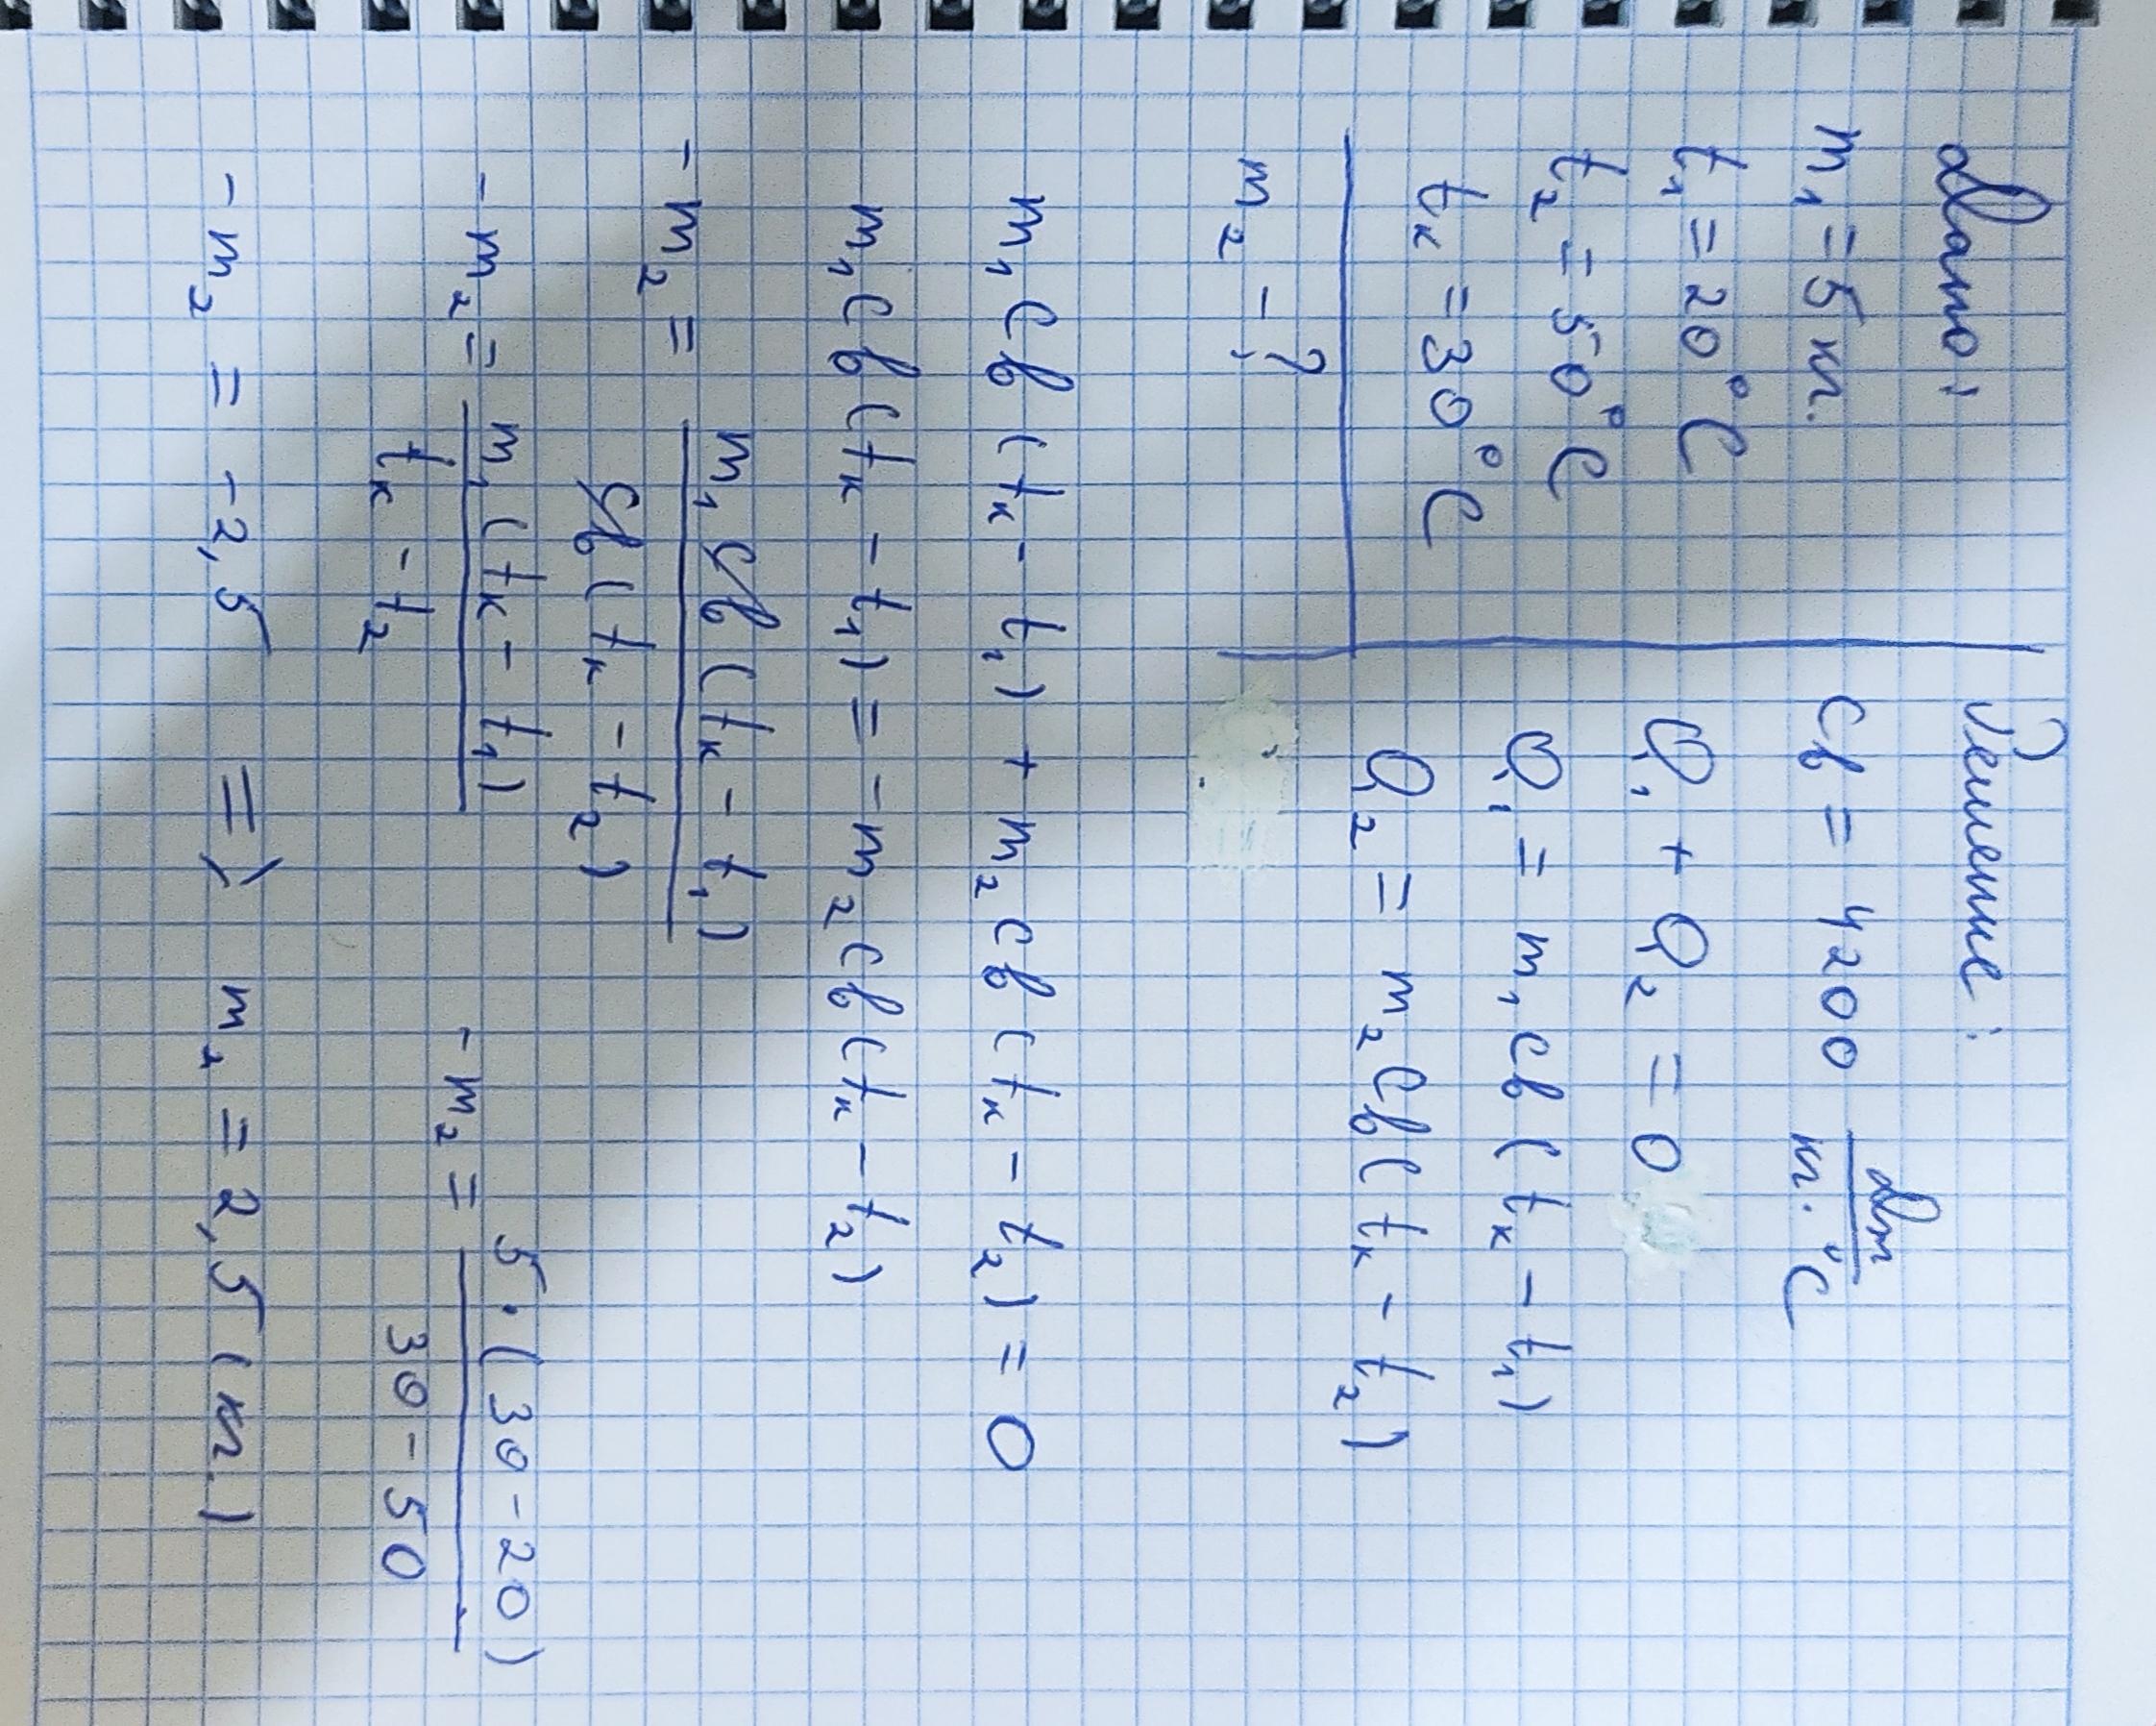 Дано:
m₁ = 5 кг.
t₁ = 20°C
t₂ = 50°C
tк = 30°C
m₂ - ?
Решение:
Cв = 4200 Дж/кг·°C
Q₁ + Q₂ = 0
Q₁ = m₁cв(tк - t₁)
Q₂ = m₂cв(tк - t₂)
m₁cв(tк - t₁) + m₂cв(tк - t₂) = 0
m₁cв(tк - t₁) = -m₂cв(tк - t₂)
-m₂ = m₁cв(tк - t₁) / cв(tк - t₂)
-m₂ = m₁(tк - t₁) / tк - t₂ -m₂ = 5·(30-20) / 30-50
-m₂ = -2,5 => m₂ = 2,5 (кг.)